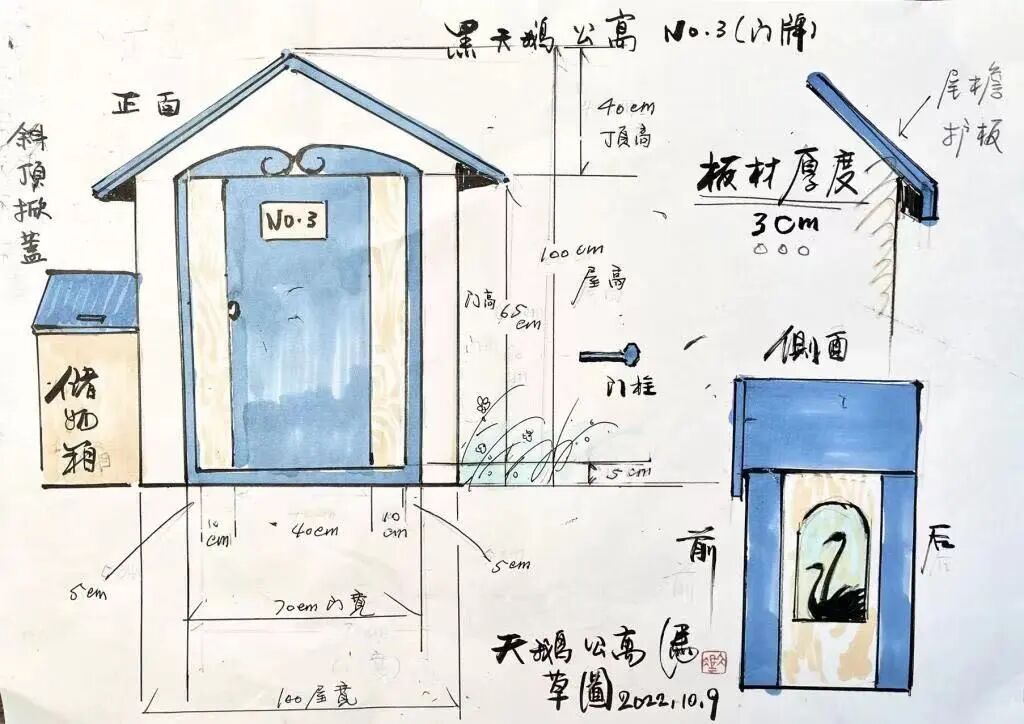 黑天鵝公寓 No.3(门牌)
正面
斜頂掀蓋
No.3
储物箱
40cm
頂高
100cm
屋高
门高 65cm
门柱
5cm
10cm
40cm
10cm
5cm
5cm
70cm 门寬
100 屋寬
尾檐
护板
板材厚度
3cm
側面
前
后
天鵝公寓
草圖 2022.10.9